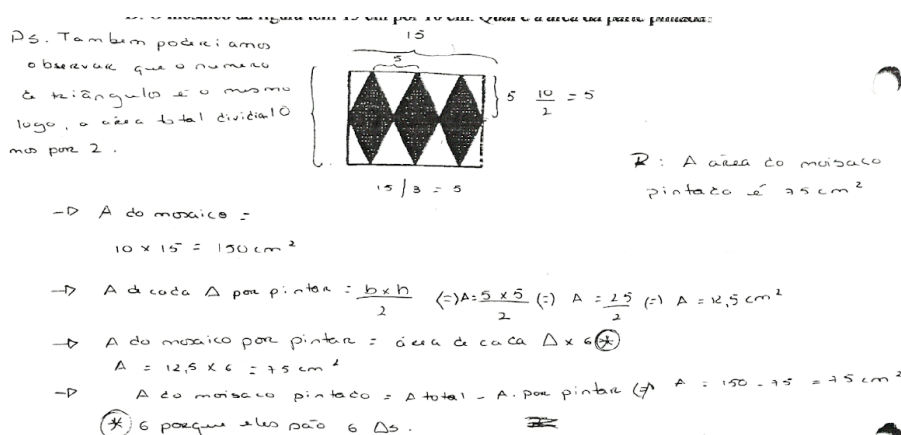 D. O mosaico da figura tem 15 cm por 10 cm. Qual é a área da parte pintada?
Ps. Tambem poderiamos
observar que o numero
de triângulos é o mesmo
logo, a área total dividia
mos por 2.
15
5
10
5
10/2 = 5
15/3 = 5
R: A area do moisaco
pintado é 75 cm²
→ A do mosaico =
10 x 15 = 150 cm²
→ A de cada Δ por pintar = b x h / 2 (=) A = 5 x 5 / 2 (=) A = 25 / 2 (=) A = 12,5 cm²
→ A do mosaico por pintar = área de cada Δ x 6 *
A = 12,5 x 6 = 75 cm²
→ A do moisaco pintado = A total - A. por pintar (=) A = 150 - 75 = 75 cm²
* 6 porque eles são 6 Δs.